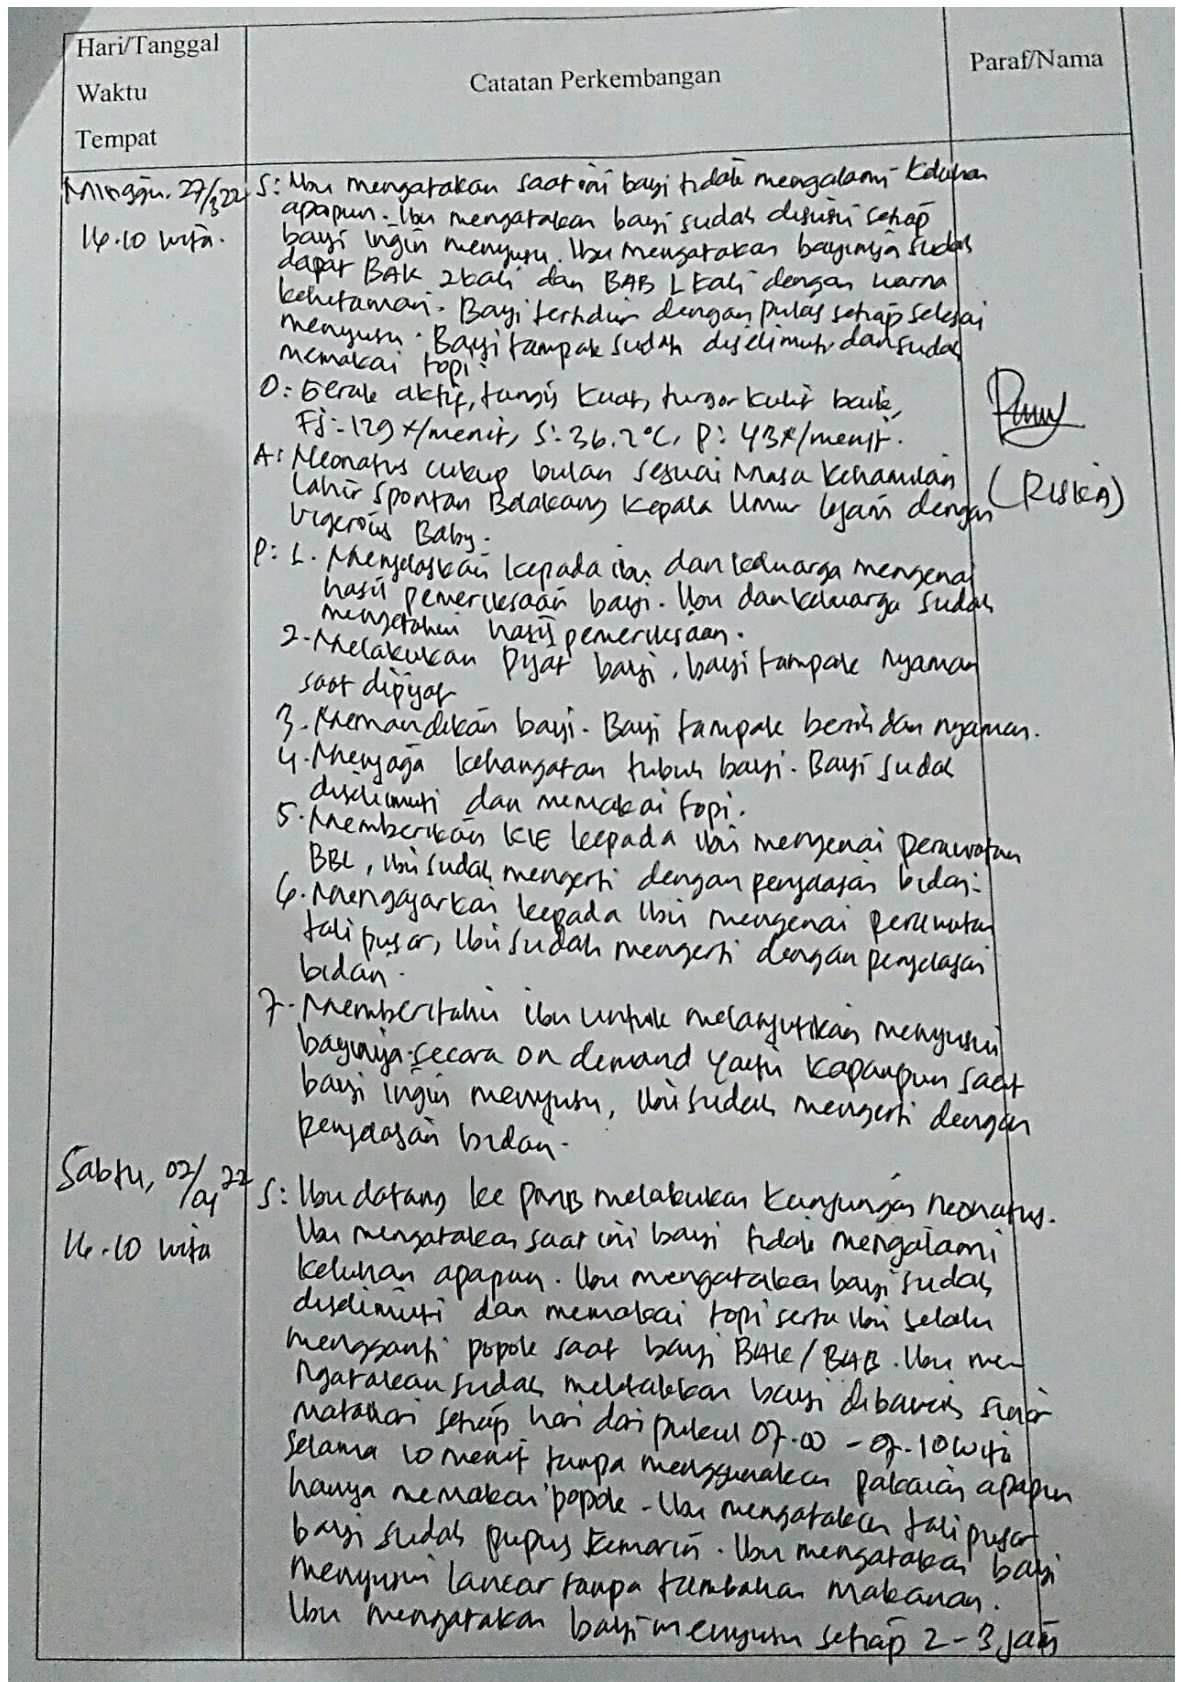 Hari/Tanggal
Waktu
Tempat
Catatan Perkembangan
Paraf/Nama
Minggu. 27/3 22
16.10 wita.
S: Ibu mengatakan saat ini bayi tidak mengalami keluhan
apapun. Ibu mengatakan bayi sudah disusui setiap
bayi ingin menyusu. Ibu mengatakan bayinya sudah
dapat BAK 2 kali dan BAB 1 kali dengan warna
kehitaman. Bayi tertidur dengan pulas setiap selesai
menyusu. Bayi tampak sudah diselimuti dan sudah
memakai topi.
O: Gerak aktif, tangis kuat, turgor kulit baik,
FJ: 129 x/menit, S: 36.2°C, P: 43x/menit.
A: Neonatus cukup bulan sesuai Masa Kehamilan
Lahir Spontan Belakang Kepala Umur 6 jam dengan
Vigerous Baby.
(RISKA)
P: 1. Menjelaskan kepada ibu dan keluarga mengenai
hasil pemeriksaan bayi. Ibu dan keluarga sudah
mengetahui hasil pemeriksaan.
2. Melakukan pijat bayi, bayi tampak nyaman
saat dipijat
3. Memandikan bayi. Bayi tampak bersih dan nyaman.
4. Menjaga kehangatan tubuh bayi. Bayi sudah
diselimuti dan memakai topi.
5. Memberikan KIE kepada ibu mengenai perawatan
BBL, ibu sudah mengerti dengan penjelasan bidan.
6. Mengajarkan kepada Ibu mengenai perawatan
tali pusar, Ibu sudah mengerti dengan penjelasan
bidan.
7. Memberitahu ibu untuk melanjutkan menyusui
bayinya secara on demand yaitu kapanpun saat
bayi ingin menyusu, Ibu sudah mengerti dengan
penjelasan bidan.
Sabtu, 02/04 22
16.10 wita
S: Ibu datang ke PMB melakukan Kunjungan Neonatus.
Ibu mengatakan saat ini bayi tidak mengalami
keluhan apapun. Ibu mengatakan bayi sudah
diselimuti dan memakai topi serta ibu selalu
mengganti popok saat bayi BAK/BAB. Ibu me-
ngatakan sudah meletakkan bayi dibawah sinar
Matahari setiap hari dari pukul 07.00 - 07.10 wita
Selama 10 menit tanpa menggunakan pakaian apapun
hanya memakai popok. Ibu mengatakan tali pusar
bayi sudah pupus kemarin. Ibu mengatakan bayi
menyusui lancar tanpa tambahan makanan.
Ibu mengatakan bayi menyusu setiap 2-3 jam